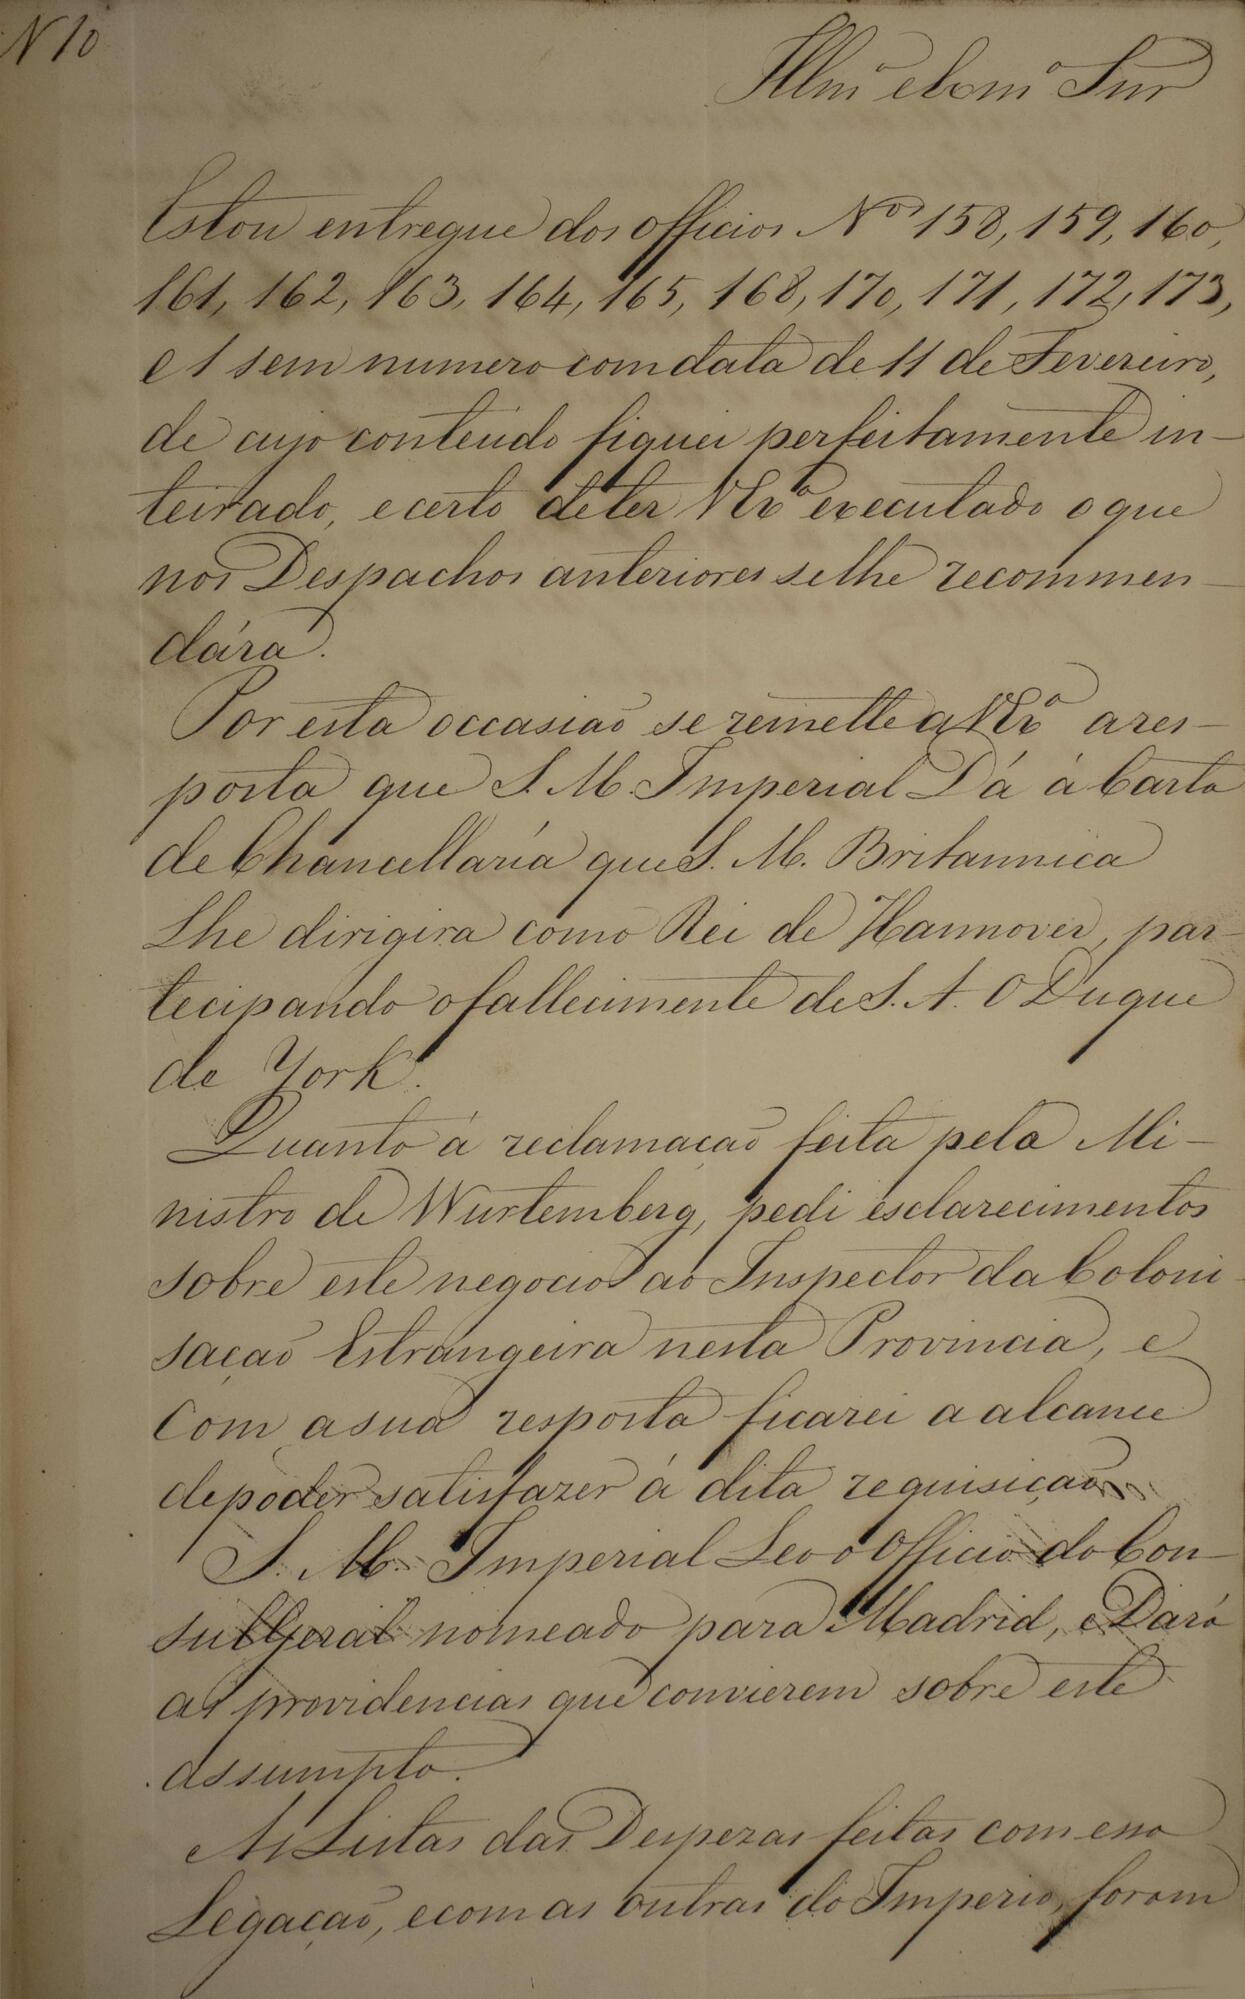 N 10
Illmo e Exmo Snr
Estou entregue dos officios Nos 158, 159, 160,
161, 162, 163, 164, 165, 168, 170, 171, 172, 173,
e 1 sem numero com data de 11 de Fevereiro,
de cujo conteúdo fiquei perfeitamente in-
teirado, e certo de ter VExa executado o que
nos Despachos anteriores se lhe recommen-
dára.
Por esta occasião se remette a VExa a res-
posta que S. M. Imperial Dá á Carta
de Chancellaría que S. M. Britannica
Lhe dirigira como Rei de Hannover, par-
tecipando o fallecimente de S. A. O Duque
de York.
Quanto á reclamação feita pelo Mi-
nistro de Wurtemberg, pedi esclarecimentos
sobre este negocio ao Inspector da Coloni-
sação Estrangeira nesta Provincia, e
Com a sua resposta ficarei a alcance
de poder satisfazer á dita requisição.
S. M. Imperial Leo o Officio do Con-
sul Geral nomeado para Madrid, e Dará
as providencias que convierem sobre este
assumpto.
As Listas das Despezas feitas com essa
Legação, e com as outras do Imperio, foram